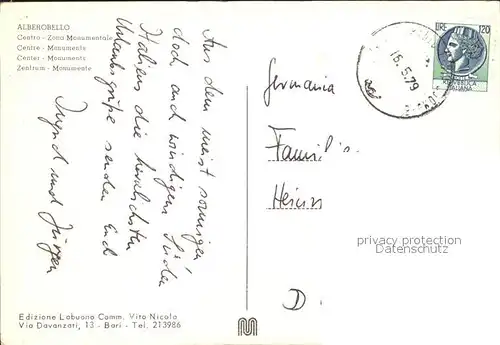 ALBEROBELLO
Centro - Zona Monumentale
Centre - Monuments
Center - Monuments
Zentrum - Monumente
Aus dem meist sonnigen,
doch auch windigen Süden
Italiens die herzlichsten
Urlaubsgrüße senden Euch
Ingrid und Jürgen
LIRE 120
REPUBBLICA
ITALIANA
16.5.79
Germania
Familie
Heins
privacy protection
Datenschutz
D.
Edizione Lobuono Comm. Vito Nicola
Via Davanzati, 13 - Bari - Tel. 213986